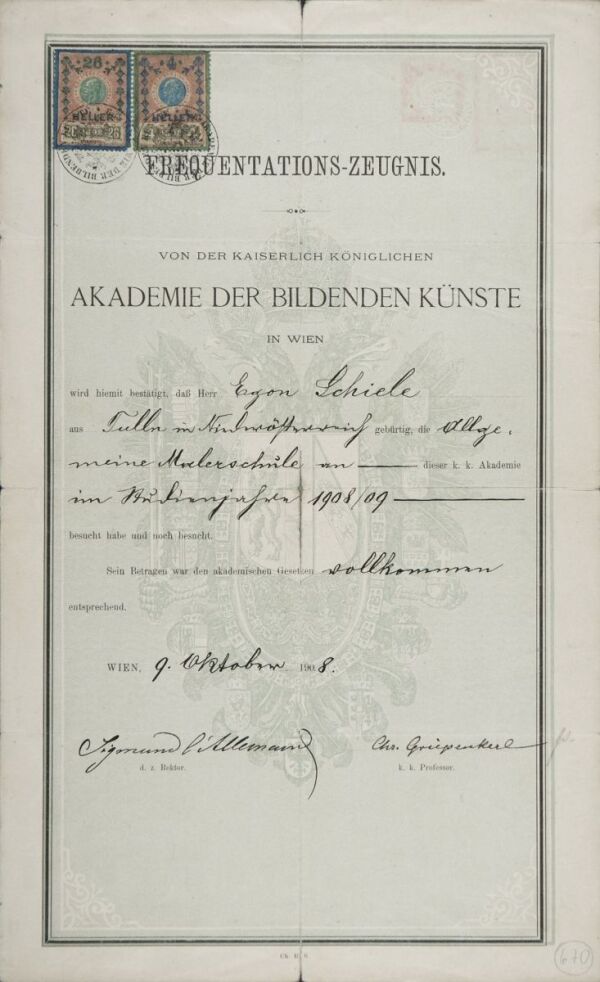 26 4
HELLER HELLER
FREQUENTATIONS-ZEUGNIS.
VON DER KAISERLICH KÖNIGLICHEN
AKADEMIE DER BILDENDEN KÜNSTE
IN WIEN
wird hiemit bestätigt, daß Herr Egon Schiele
aus Tulln in Niederösterreich gebürtig, die Allge-
meine Malerschule an — dieser k. k. Akademie
im Studienjahre 1908/09 —
besucht habe und noch besucht.
Sein Betragen war den akademischen Gesetzen vollkommen
entsprechend.
WIEN, 9. Oktober 1908.
Sigmund l'Allemand Chr. Griepenkerl
d. z. Rektor. k. k. Professor.
670